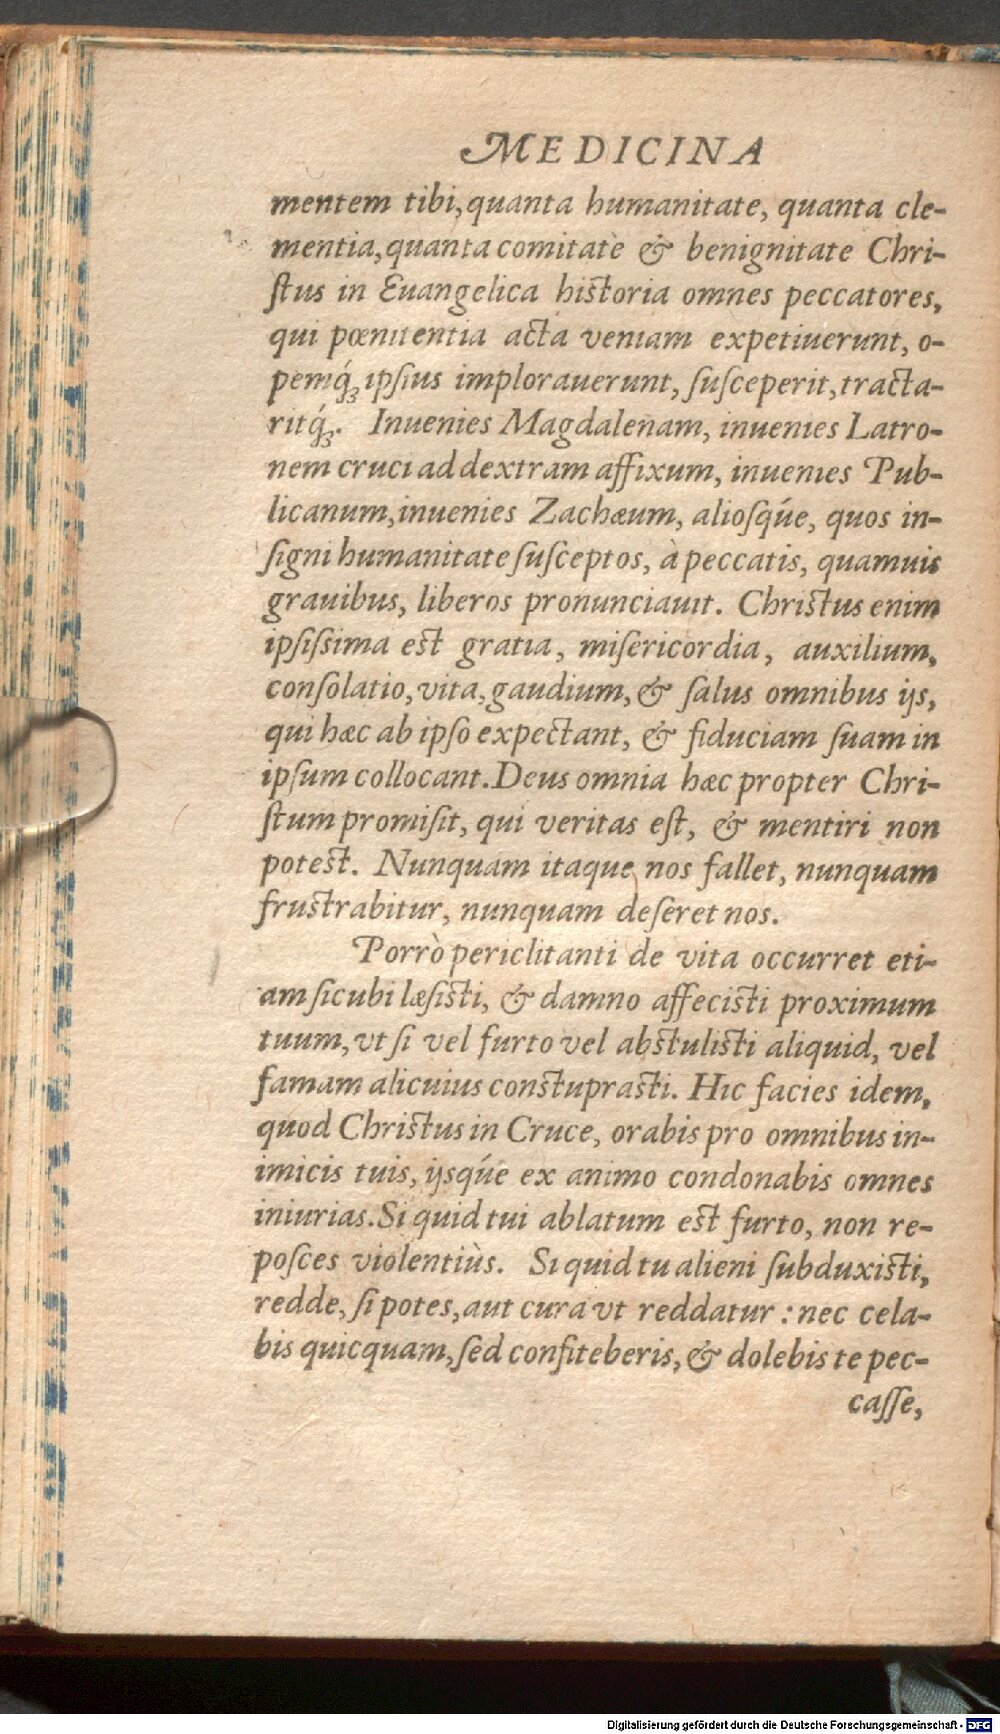 MEDICINA
mentem tibi, quanta humanitate, quanta cle-
mentia, quanta comitate & benignitate Chri-
ſtus in Euangelica hiſtoria omnes peccatores,
qui pœnitentia acta veniam expetiuerunt, o-
pemq́; ipſius implorauerunt, ſuſceperit, tracta-
ritq́;. Inuenies Magdalenam, inuenies Latro-
nem cruci ad dextram affixum, inuenies Pub-
licanum, inuenies Zachæum, alioſq́ue, quos in-
ſigni humanitate ſuſceptos, à peccatis, quamuis
grauibus, liberos pronunciauit. Chriſtus enim
ipſiſsima eſt gratia, miſericordia, auxilium,
conſolatio, vita, gaudium, & ſalus omnibus ijs,
qui hæc ab ipſo expectant, & fiduciam ſuam in
ipſum collocant. Deus omnia hæc propter Chri-
ſtum promiſit, qui veritas eſt, & mentiri non
poteſt. Nunquam itaque nos fallet, nunquam
fruſtrabitur, nunquam deſeret nos.
Porrò periclitanti de vita occurret eti-
am ſicubi læſiſti, & damno affeciſti proximum
tuum, vt ſi vel furto vel abſtuliſti aliquid, vel
famam alicuius conſtupraſti. Hic facies idem,
quod Chriſtus in Cruce, orabis pro omnibus in-
imicis tuis, ijsq́ue ex animo condonabis omnes
iniurias. Si quid tui ablatum eſt furto, non re-
poſces violentiùs. Si quid tu alieni ſubduxiſti,
redde, ſi potes, aut cura vt reddatur : nec cela-
bis quicquam, ſed confiteberis, & dolebis te pec-
caſſe,
Digitalisierung gefördert durch die Deutsche Forschungsgemeinschaft - DFG